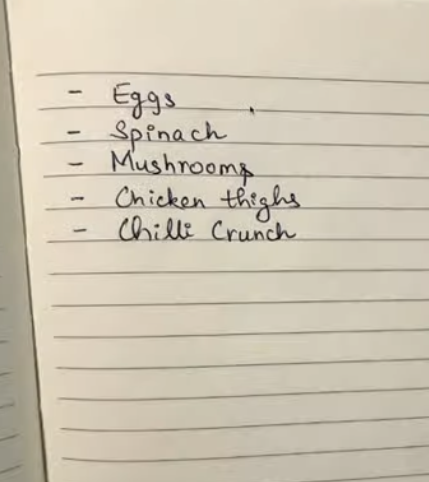 - Eggs
- Spinach
- Mushrooms
- Chicken thighs
- Chilli Crunch